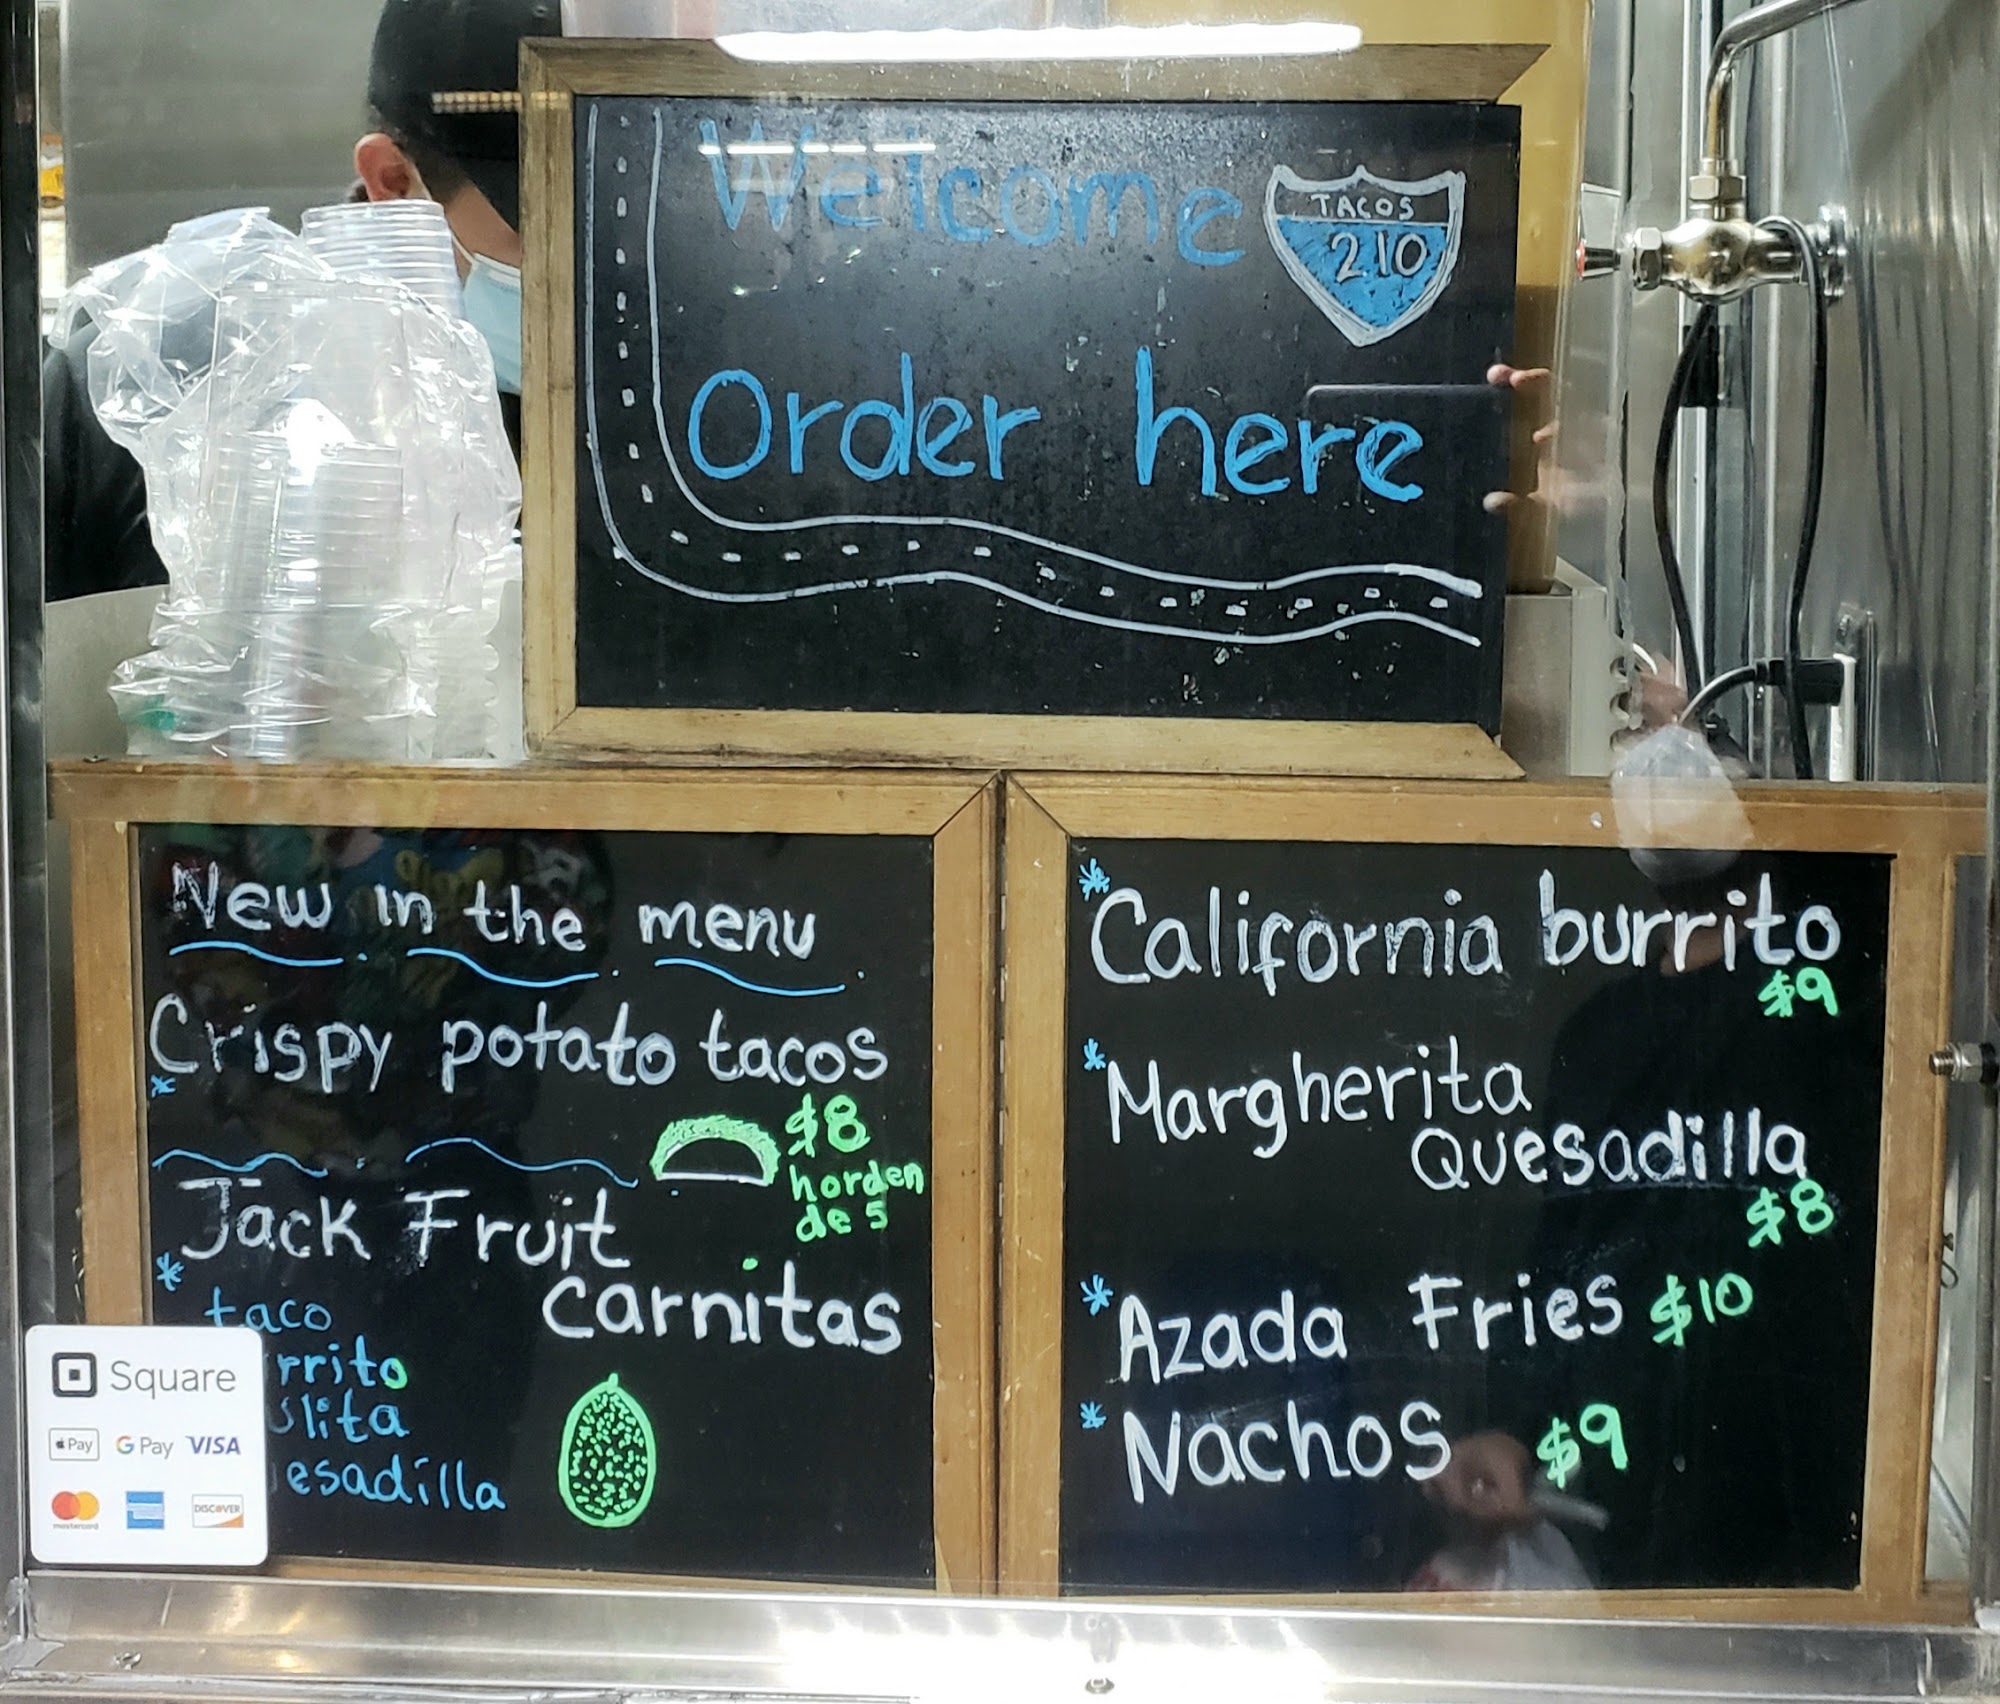 Welcome
TACOS
210
Order here
New in the menu
Crispy potato tacos
$8
horden
de 5
Jack Fruit
Carnitas
taco
rrito
slita
esadilla
Square
Pay
G Pay
VISA
mastercard
DISCOVER
California burrito
$9
Margherita
Quesadilla
$8
Azada Fries $10
Nachos $9